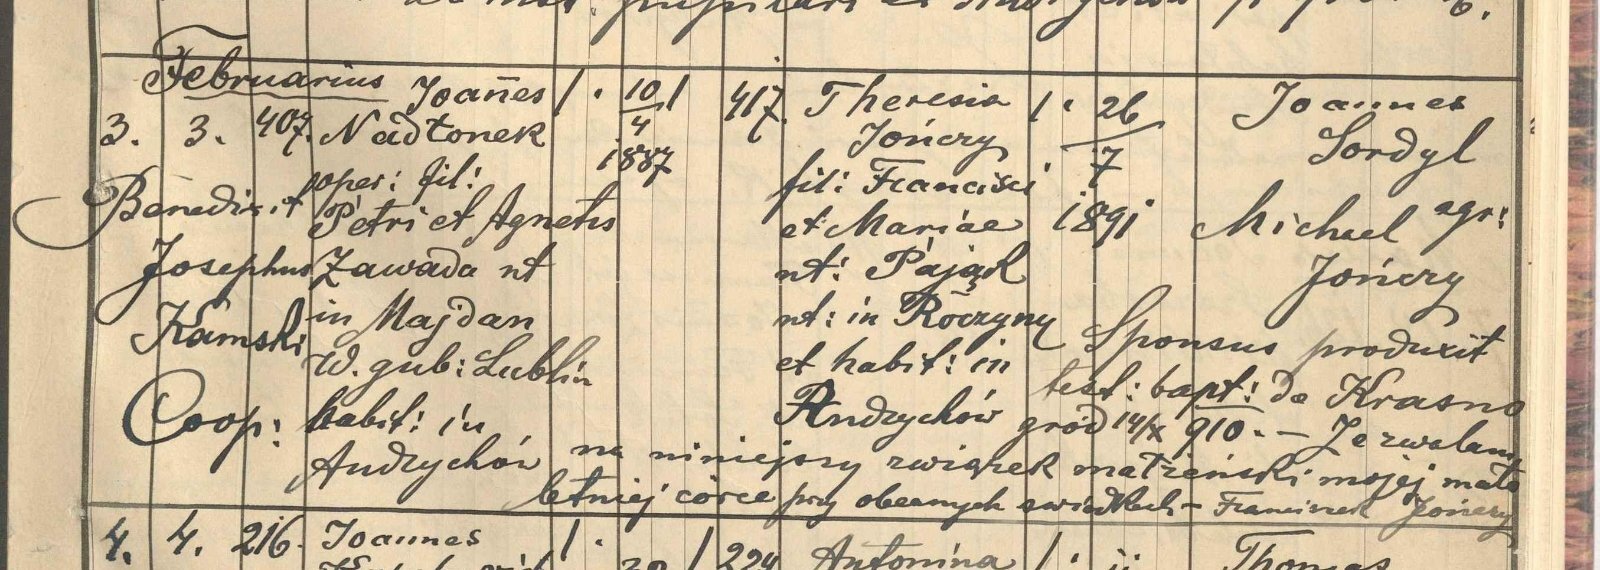 Februarius
3. 3. 407. Joañes
Nadtonek
oper: fil:
Petri et Agnetis
Zawada nt
in Majdan
W. gub: Lublin
habit: in
Andrychów
Benedixit
Josephus
Kamski
Coop:
1 . 10/4 1
1887
417. Theresia
Jończy
fil: Francisci
et Mariae
nt: Pająk
nt: in Roczyny
et habit: in
Andrychów
1 . 26
. 7
1891
Joannes
Sordyl
Michael agr:
Jończy
Sponsus produxit
test: bapt: de Krasno
gród 14/X 910. — Zezwalam
na niniejszy związek małżeński mojej mało
letniej córce przy obecnych świadkach — Franciszek Jończy
4. 4. 216. Joannes 1 . 1 224 Antonina 1 . ii Thomas